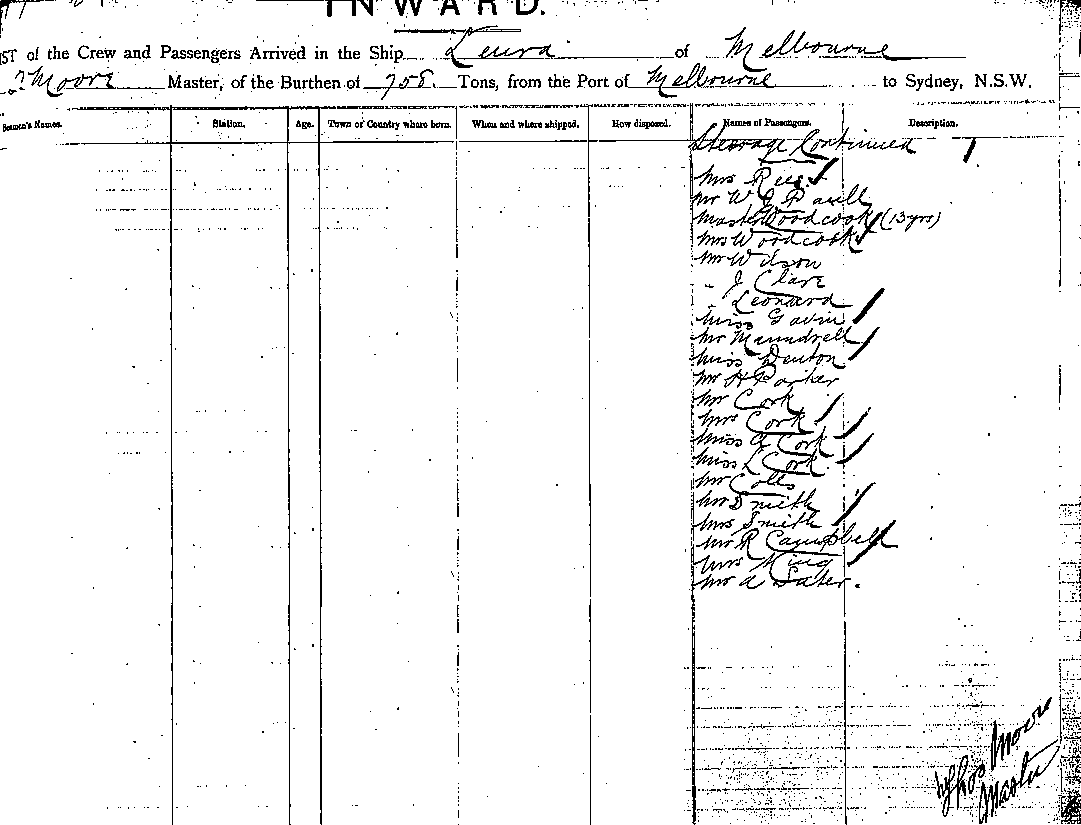 INWARD.
ST of the Crew and Passengers Arrived in the Ship Leura of Melbourne
Moore Master, of the Burthen of 708. Tons, from the Port of Melbourne to Sydney, N.S.W.
Seaman's Names. Station. Age. Town or Country where born. When and where shipped. How disposed. Names of Passengers. Description.
Steerage Continued
Mrs Rees
Mr W J Pavell
Master Woodcock (13 yrs)
Mrs Woodcock
Mr Wilson
" J Clare
" Leonard
Miss Gavin
Mr Maundrell
Miss Denton
Mr H Parker
Mr Cork
Mrs Cork
Miss A Cork
Miss L Cork
Mr Colls
Mr Smith
Mrs Smith
Mr R Campbell
Mrs King
Mr A
Thos Moore
Master